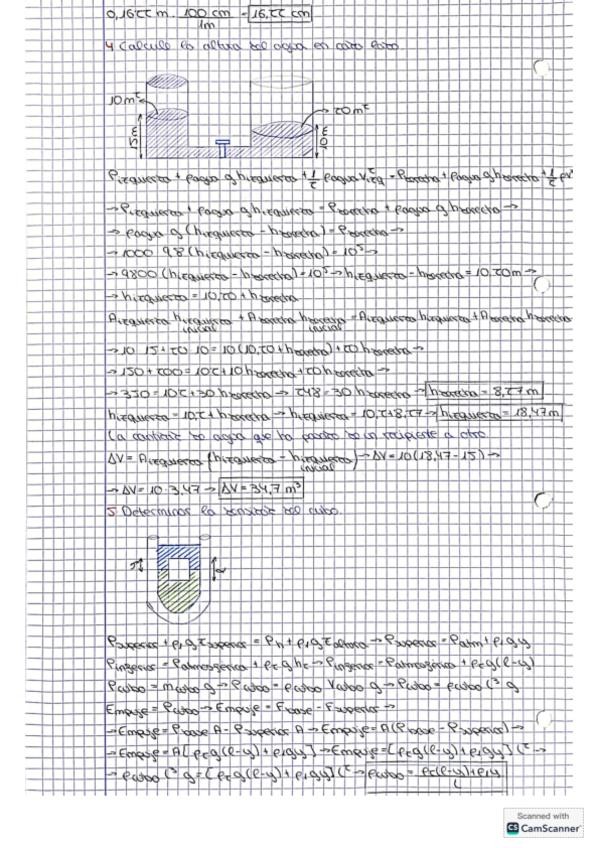 0,1622 m · 100 cm / 1m = 16,22 cm
4 Calcule la altura del agua en cada lado.
10m²
20m²
15m
10m
Pizquierda + ρagua g hizquierda + 1/2 ρagua V²izq = Pderecha + ρagua g hderecha + 1/2 ρV
→ Pizquierda + ρagua g hizquierda = Pderecha + ρagua g hderecha →
→ ρagua g (hizquierda - hderecha) = Pderecha →
→ 1000 9,8 (hizquierda - hderecha) = 10⁵ →
→ 9800 (hizquierda - hderecha) = 10⁵ → hizquierda - hderecha = 10,20m →
→ hizquierda = 10,20 + hderecha
Aizquierda hizquierda inicial + Aderecha hderecha inicial = Aizquierda hizquierda + Aderecha hderecha
→ 10 15 + 20 10 = 10 (10,20 + hderecha) + 20 hderecha →
→ 150 + 200 = 102 + 10 hderecha + 20 hderecha →
→ 350 = 102 + 30 hderecha → 248 = 30 hderecha → hderecha = 8,27 m
hizquierda = 10,2 + hderecha → hizquierda = 10,2 + 8,27 → hizquierda = 18,47 m
La cantidad de agua que ha pasado de un recipiente a otro
ΔV = Aizquierda (hizquierda - hizquierda inicial) → ΔV = 10 (18,47 - 15) →
→ ΔV = 10 · 3,47 → ΔV = 34,7 m³
5 Determinar la densidad del cubo.
Psuperior + ρ1 g zsuperior = Ph + ρ1 g zaltura → Psuperior = Patm + ρ1 g y
Pinferior = Patmosférica + ρ2 g h2 → Pinferior = Patmosférica + ρ2 g (l-y)
Pcubo = mcubo g → Pcubo = ρcubo Vcubo g → Pcubo = ρcubo l³ g
Empuje = Pcubo → Empuje = Fbase - Fsuperior →
→ Empuje = Pbase A - Psuperior A → Empuje = A (Pbase - Psuperior) →
→ Empuje = A [ρ2 g (l-y) + ρ1 g y] → Empuje = [ρ2 g (l-y) + ρ1 g y] l² →
→ ρcubo l³ g = [ρ2 g (l-y) + ρ1 g y] l² → ρcubo = ρ2 (l-y) + ρ1 y / l
Scanned with
CS CamScanner